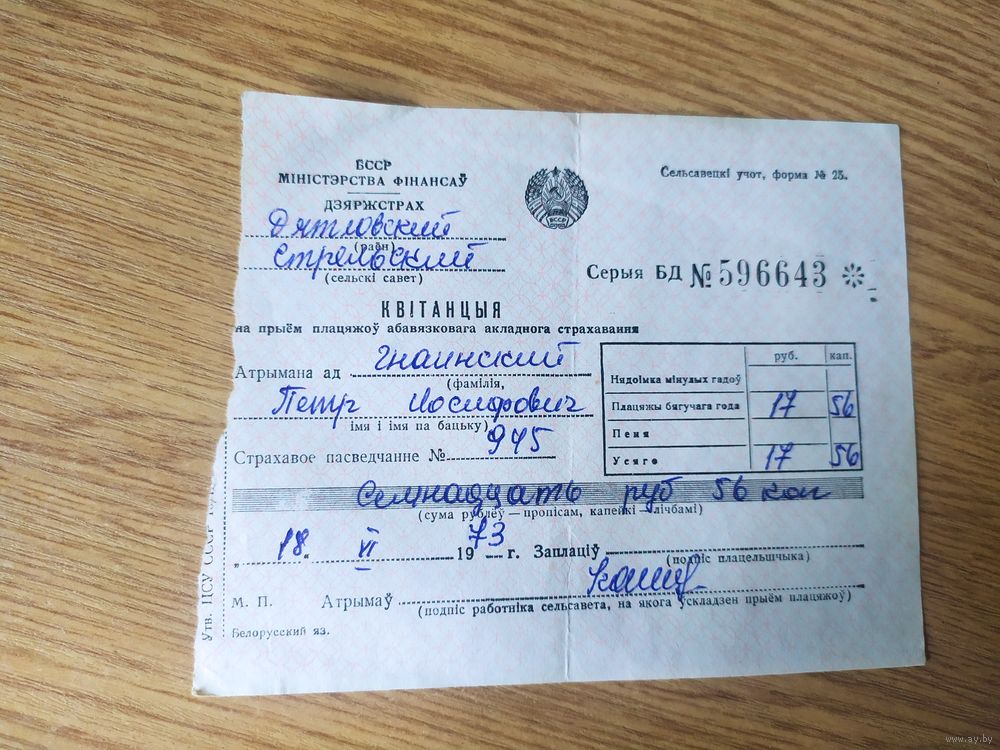 БССР
МІНІСТЭРСТВА ФІНАНСАЎ
ДЗЯРЖСТРАХ
Дятловский
(раён)
Стрельский
(сельскі савет)
Сельсавецкі учот, форма № 25.
БССР
Серыя БД № 596643
КВІТАНЦЫЯ
на прыём плацяжоў абавязковага акладнога страхавання
Атрымана ад Гнаинский
(фамілія,
Петр Иосифович
імя і імя па бацьку)
Страхавое пасведчанне № 945
руб. кап.
Нядоімка мінулых гадоў
Плацяжы бягучага года 17 56
Пеня
Усяго 17 56
Семнадцать руб 56 коп
(сума рублёў — пропісам, капейкі — лічбамі)
„ 18. VI 1973 — г. Заплаціў
(подпіс плацельшчыка)
М. П. Атрымаў
(подпіс работніка сельсавета, на якога ўскладзен прыём плацяжоў)
Белорусский яз.
Утв. ЦСУ СССР
www.ay.by